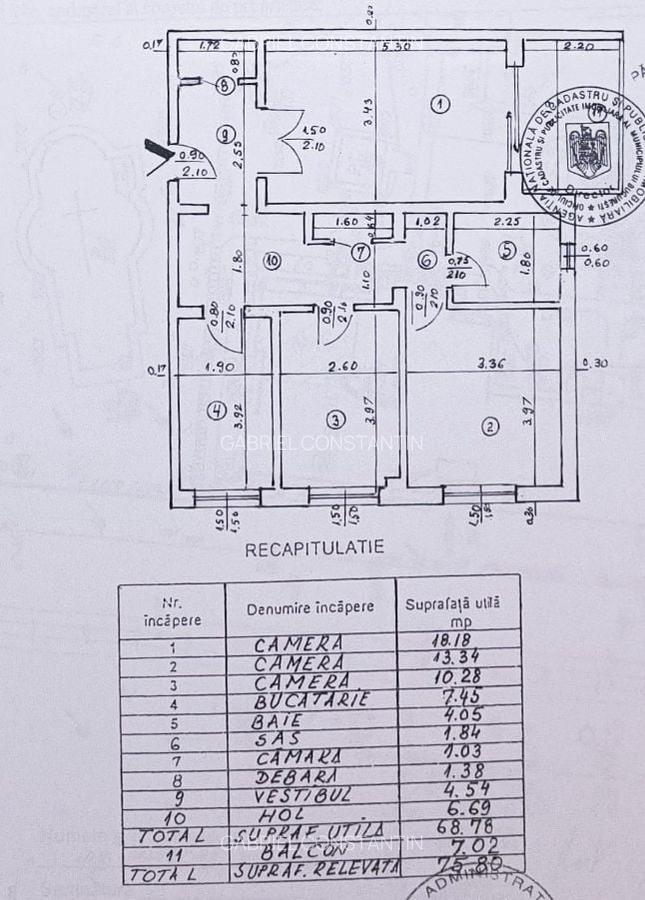 0.17
1.72
5.30
2.20
GABRIEL CONSTANTIN
0.80
8
1
11
3.43
9
1.50
2.10
0.90
2.10
2.55
AGENȚIA NAȚIONALĂ DE CADASTRU ȘI PUBLICITATE IMOBILIARĂ
OFICIUL DE CADASTRU ȘI PUBLICITATE IMOBILIARĂ AL MUNICIPIULUI BUCUREȘTI
Director
1.60
0.64
1.02
2.25
7
6
5
10
1.80
1.10
0.75
2.10
1.80
0.60
0.60
0.80
2.10
0.90
2.10
0.90
2.10
0.17
1.90
2.60
3.36
0.30
4
3.92
3
3.97
2
3.97
GABRIEL CONSTANTIN
1.50
1.50
1.50
1.50
1.50
0.30
RECAPITULATIE
Nr. încăpere Denumire încăpere Suprafață utilă mp
1 CAMERA 18.18
2 CAMERA 13.34
3 CAMERA 10.28
4 BUCATARIE 7.45
5 BAIE 4.05
6 SAS 1.84
7 CAMARA 1.03
8 DEBARA 1.38
9 VESTIBUL 4.54
10 HOL 6.69
TOTAL SUPRAF. UTILA 68.78
11 BALCON 7.02
TOTAL SUPRAF. RELEVATA 75.80
GABRIEL CONSTANTIN
ADMINISTRAT